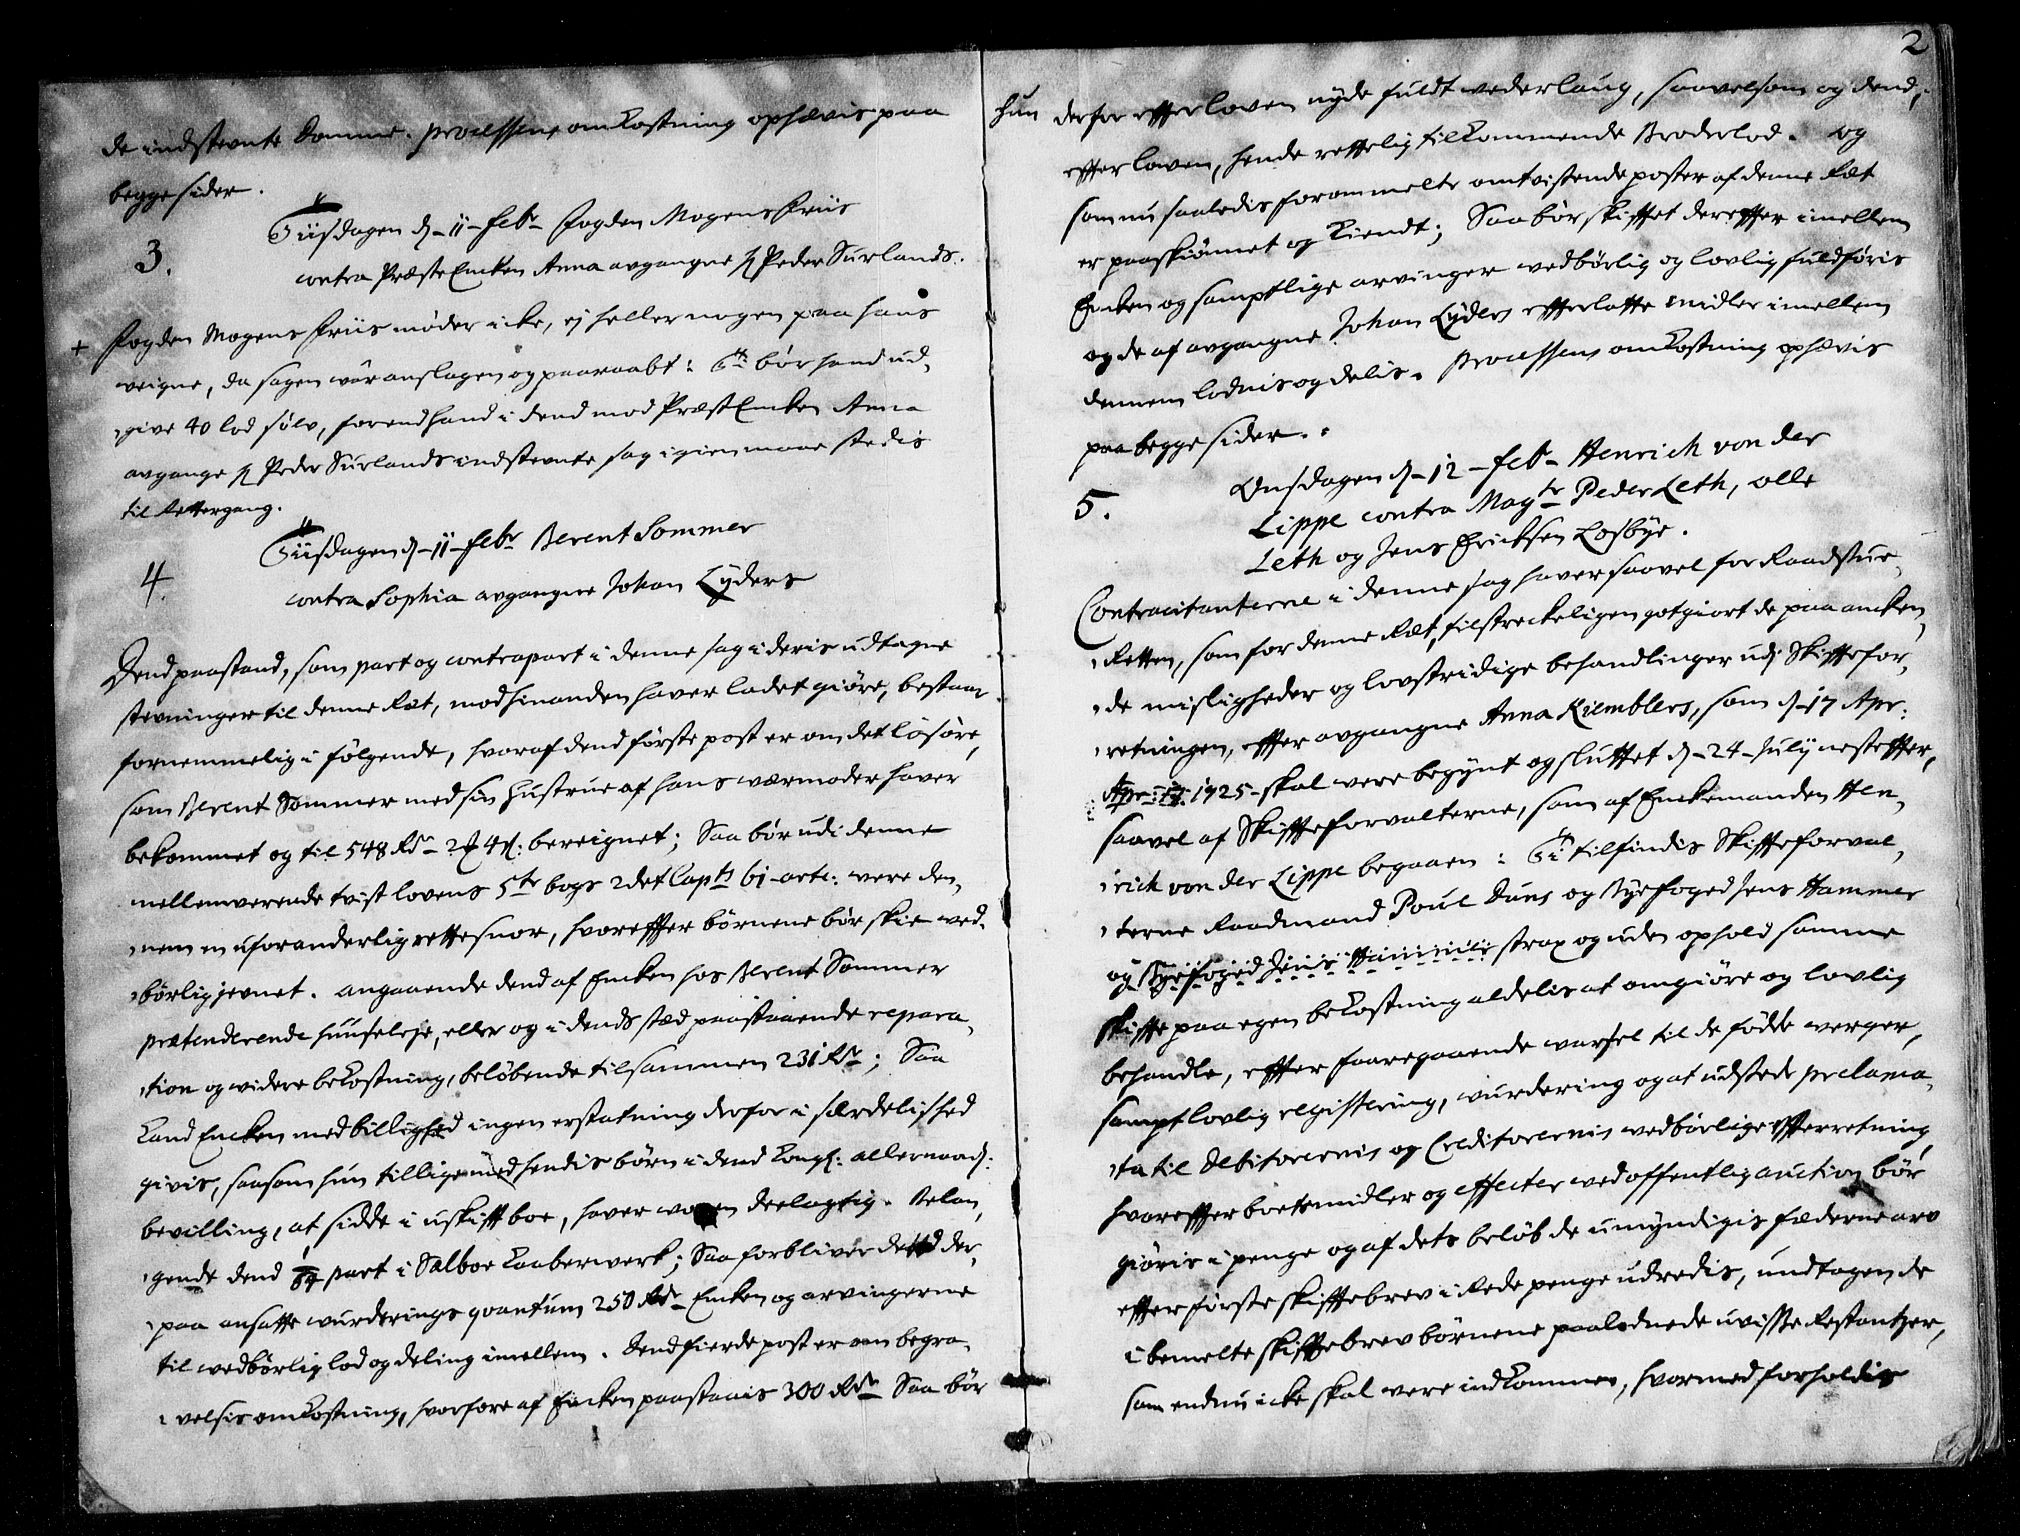 de indstevnte Domme. Processens omkostning ophævis paa
begge sider.
Tiisdagen d. 11 Febr. Fogden Mogens Friis
3.
contra Præste Encken Anna avgangne Hr. Peder Surlands.
+ Fogden Mogens Friis møder icke, ej heller nogen paa hans
veigne, da sagen wår anslagen og paaraabt: Ti bør hand ud,
,give 40 lod sølv, forend hand i dend mod Præst Encken Anna
avgangne Hr. Peder Surlands indstevnte sag igien maae stedis
til Rettergang.
Tiisdagen d. 11 Febr. Berent Sommer
4.
contra Sophia avgangne Johan Lÿders
Dend paastand, som part og contrapart i denne sag i deris udtagne
stevninger til denne Ræt, mod hinanden haver ladet giøre, bestaar
fornemmelig i følgende, hvoraf dend første post er om det løsøre,
som Berent Sommer med sin Hustrue af hans wærmoder haver
bekommet og til 548 Rdr. 2 ort 4 s: bereignet; Saa bør udi denne
mellemverende tvist lovens 5te bogs 2det Capts 61 artc: vere den,
,nem en uforanderlig rettesnor, hvorefter børnene bør skie ved,
,børlig jevnet. angaaende dend af Encken hos Berent Sommer
prætenderende huusleje, eller og i dends stæd paastaaende repara,
,tion og widere bekostning, beløbende tilsammen 231 Rdr; Saa
kand Encken med billighed ingen erstatning derfor i særdelished
givis, saasom hun tillige med hendis børn i dend Kongl: allernaad:
bevilling, at sidde i uskift boe, haver waren deelagtig. Belan,
,gende dend 1/64 part i Sælboe Kaaberwerk; Saa forbliver det ved der,
,paa ansatte wurderings qvantum 250 Rdr Encken og arvingerne
til wedbørlig lod og deling imellem. Dend fierde post er om begra,
,velsis omkostning, hvorfore af Encken paastaais 300 Rdr. Saa bør
2
hun derfor efter loven nyde fuldt wederlaug, saavelsom og dend,
efter loven, hende rettelig tilkommende Broderlod. og
som nu saaledis forommelte omtvistende poster af denne Ræt
er paaskiønnet og kiendt; Saa bør skiftet derefter imellem
Encken og samptlige arvinger wedbørlig og lovlig fuldføris
og de af avgangne Johan Lÿders efterlatte midler imellem
dennem lodnis og delis. Processens omkostning ophævis
paa begge sider.
Onsdagen d. 12 Feb. Henrich von der
5.
Lippe contra Magtr. Peder Leth, olle
Leth og Jens Ericksen Losbye.
Contracitanterne i denne sag haver saavel for Raadstue,
,Retten, som for denne Ræt, tilstreckeligen gotgiort de paa ancken,
,de misligheder og lovstridige behandlinger udj Skiftefor,
,retningen, efter avgangne Anna Kiemblers, som d. 17 Apr:
Apr: 17. 1725 skal were begynt og sluttet d. 24 July nestefter,
saavel af Skifteforvalterne, som af Enckemanden Hen,
,rich von der Lippe begaaen: Ti tilfindis Skifteforval,
,terne Raadmand Poul Duus og Byefoged Jens Hammer
og Byefoged Jens Hammer strax og uden ophold samme
skifte paa egen bekostning aldelis at omgiøre og lovlig
behandle, efter foaregaaende warsel til de fødde werger,
sampt lovlig registering, wurdering og at udstede proclama,
,ta til Debitorernis og Creditorernis wedbørlige efterretning,
hvorefter boets midler og effecter wed offentlig auction bør
giøris i penge og af dets beløb de umyndigis fæderne arv
efter første skiftebrev i Rede penge udredis, undtagen de
i bemelte skiftebrev børnene paalodnede uvisse Restantzer,
som endnu icke skal were indkommen, hvormed forholdis